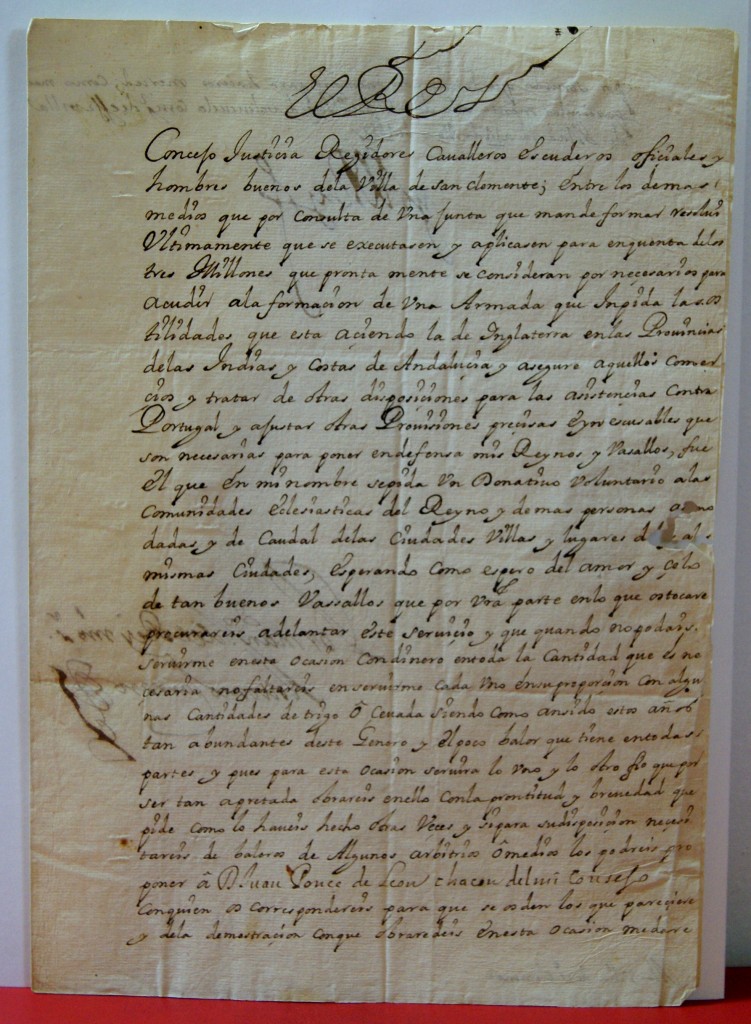 El Rey
Concejo Justicia Regidores Cavalleros Escuderos oficiales y
hombres buenos dela Villa de san clemente; Entre los demas
medios que por consulta de Vna Junta que mande formar resolui
Vltimamente que se executasen y aplicasen para enquenta delos
tres Millones que pronta mente se consideran por necesarios para
acudir ala formacion de Vna Armada que Inpida las os
tilidades que esta aciendo la de Inglaterra enlas Prouincias
delas Indias y Costas de Andalucia y asegure aquellos comer
cios y tratar de otras disposiciones para las asistencias contra
Portugal y ajustar otras Prouisiones precisas Eynescusables que
son necesarias para poner endefensa mis Reynos y Vasallos, fue
El que En mi nombre sepida Vn Donatiuo Voluntario alas
Comunidades Eclesiasticas del Reyno y demas personas acomo
dadas y de Caudal delas Ciudades Villas y lugares
mismas Ciudades, Esperando como espero del amor y çelo
de tan buenos Vassallos que por Vra parte enlo que ostocare
procurareis adelantar Este seruicio y que quando nopodais
seruirme enesta ocasion condinero entoda la Cantidad que es ne
cesaria nofaltareis enseruirme cada Vno ensuproporcion con algu
nas Cantidades de trigo ô Ceuada siendo como ansido estos años
tan abundantes deste Genero y Elpoco balor que tiene entodas
partes y pues para esta ocasion seruira lo Vno y lo otro fio que por
ser tan apretada obrareis enello conla prontitud y breuedad que
pide como lo haueis hecho otras Veces y sipara sudisposicion necesi
tareis de baleros de Algunos arbitrios ômedios los podreis pro
poner â D. Juan Ponce de Leon chacon delmi Consejo
Conquien os correspondereis para que se osden los que pareciere
y dela demostracion conque obraredeis Enesta ocasion medare